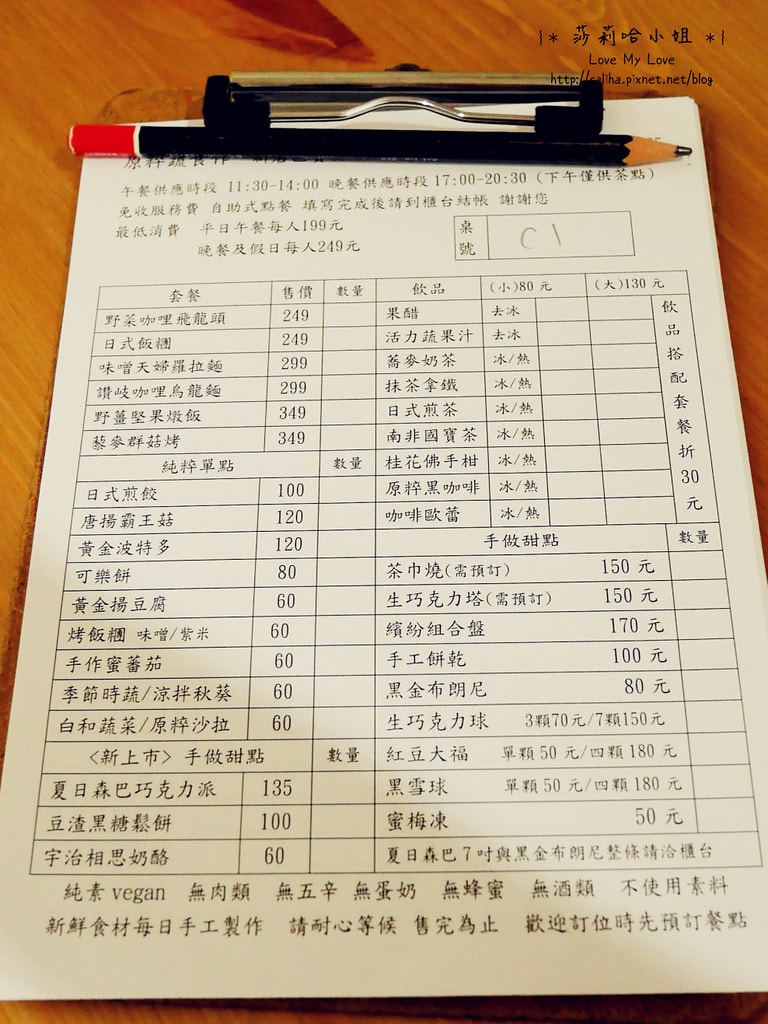 {* 莎莉哈小姐 *}
Love My Love
http://saliha.pixnet.net/blog
原粹蔬食作
午餐供應時段 11:30-14:00 晚餐供應時段 17:00-20:30 (下午僅供茶點)
免收服務費 自助式點餐 填寫完成後請到櫃台結帳 謝謝您
最低消費 平日午餐每人199元
晚餐及假日每人249元
桌號 C1
套餐 售價 數量
野菜咖哩飛龍頭 249
日式飯糰 249
味噌天婦羅拉麵 299
讚岐咖哩烏龍麵 299
野薑堅果燉飯 349
藜麥群菇烤 349
純粹單點 數量
日式煎餃 100
唐揚霸王菇 120
黃金波特多 120
可樂餅 80
黃金揚豆腐 60
烤飯糰 味噌/紫米 60
手作蜜蕃茄 60
季節時蔬/涼拌秋葵 60
白和蔬菜/原粹沙拉 60
〈新上市〉手做甜點 數量
夏日森巴巧克力派 135
豆渣黑糖鬆餅 100
宇治相思奶酪 60
飲品 (小)80元 (大)130元
果醋 去冰
活力蔬果汁 去冰
蕎麥奶茶 冰/熱
抹茶拿鐵 冰/熱
日式煎茶 冰/熱
南非國寶茶 冰/熱
桂花佛手柑 冰/熱
原粹黑咖啡 冰/熱
咖啡歐蕾 冰/熱
飲品搭配套餐折30元
手做甜點 數量
茶巾燒(需預訂) 150元
生巧克力塔(需預訂) 150元
繽紛組合盤 170元
手工餅乾 100元
黑金布朗尼 80元
生巧克力球 3顆70元/7顆150元
紅豆大福 單顆50元/四顆180元
黑雪球 單顆50元/四顆180元
蜜梅凍 50元
夏日森巴7吋與黑金布朗尼整條請洽櫃台
純素vegan 無肉類 無五辛 無蛋奶 無蜂蜜 無酒類 不使用素料
新鮮食材每日手工製作 請耐心等候 售完為止 歡迎訂位時先預訂餐點